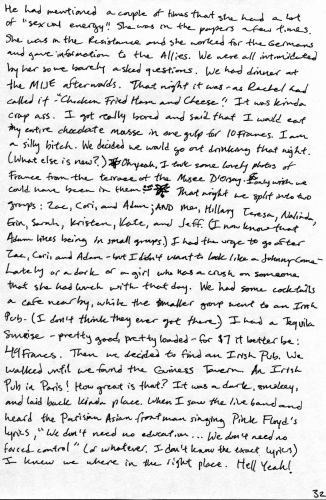 He had mentioned a couple of times that she had a lot
of "sexual energy." She was in the papers a few times.
She was in the Resistance and she worked for the Germans
and gave information to the Allies. We were all intimidated
by her some barely asked questions. We had dinner at
the MIJE afterwards. That night it was - as Rachel had
called it - "Chicken Fried Ham and Cheese!" It was kinda
crap ass. I got really bored and said that I would eat
my entire chocolate mousse in one gulp for 10 Francs. I am
a silly bitch. We decided we would go out drinking that night.
(What else is new?) Oh yeah, I took some lovely photos of
France from the terrace at the Musee D'Orsay. Only wish we
could have been in them. That night we split into two
groups: Zac, Cori, and Adam; AND me, Hillary, Teresa, Malinda,
Erin, Sarah, Kristen, Kate, and Jeff. (I now know that
Adam likes being in small groups.) I had the urge to go after
Zac, Cori, and Adam - but I didn't want to look like a Johnny Come-
Lately or a dork or a girl who has a crush on someone
that she had lunch with that day. We had some cocktails
a cafe nearby, while the smaller group went to an Irish
Pub. (I don't think they ever got there) I had a Tequila
Sunrise - pretty good, pretty loaded - for $7 it better be:
49 Francs. Then we decided to find an Irish Pub. We
walked until we found the Guiness Tavern. An Irish
Pub in Paris! How great is that? It was a dark, smokey,
and laid back kinda place. When I saw the live band and
heard the Parisian Asian frontman singing Pink Floyd's
lyrics, "We don't need no education... We don't need no
forced control" (or whatever. I don't know the exact lyrics)
I knew we where in the right place. Hell Yeah!
32